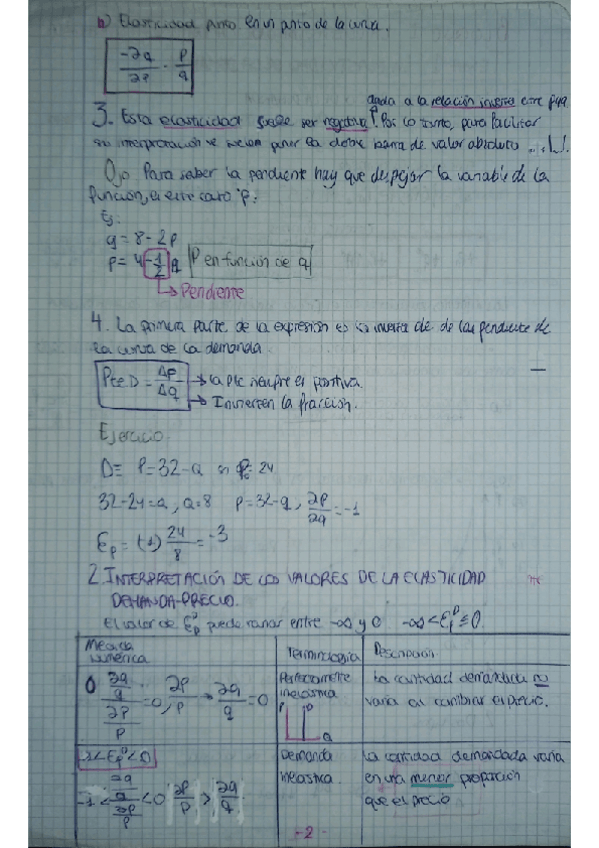 b) Elasticidad punto en un punto de la curva.
-∂q/∂p · p/q
debida a la relación inversa entre p y q
3. Esta elasticidad suele ser negativa. Por lo tanto, para facilitar
su interpretación se suelen poner en doble barra de valor absoluto ...|..|.
Ojo Para saber la pendiente hay que despejar la variable de la
función, en este caso "p".
Ej:
q = 8 - 2p
p = 4 - 1/2 q P en función de q
→ Pendiente
4. La primera parte de la expresión es la inversa de de la pendiente de
la curva de la demanda.
Pte D = Δp/Δq → la pte siempre es positiva.
→ Invierten la fracción.
Ejercicio:
D ≡ P = 32 - Q P₀ = 24
32 - 24 = Q, Q = 8 p = 32 - q, ∂p/∂q = -1
Ep = (-1) 24/8 = -3
2. INTERPRETACIÓN DE LOS VALORES DE LA ELASTICIDAD
DEMANDA-PRECIO.
El valor de Ep^D puede variar entre -∞ y 0 -∞ < Ep^D ≤ 0.
Medida numérica Terminología Descripción
0 (∂q/q)/(∂p/p) = 0, ∂p/p → ∂q/q = 0
Perfectamente
inelástica
P D
Q
La cantidad demandada no
varía al cambiar el precio.
-1 < Ep^D < 0
-1 < (∂q/q)/(∂p/p) < 0 ∂p/p > ∂q/q
Demanda
inelástica
La cantidad demandada varía
en una menor proporción
que el precio
-2-